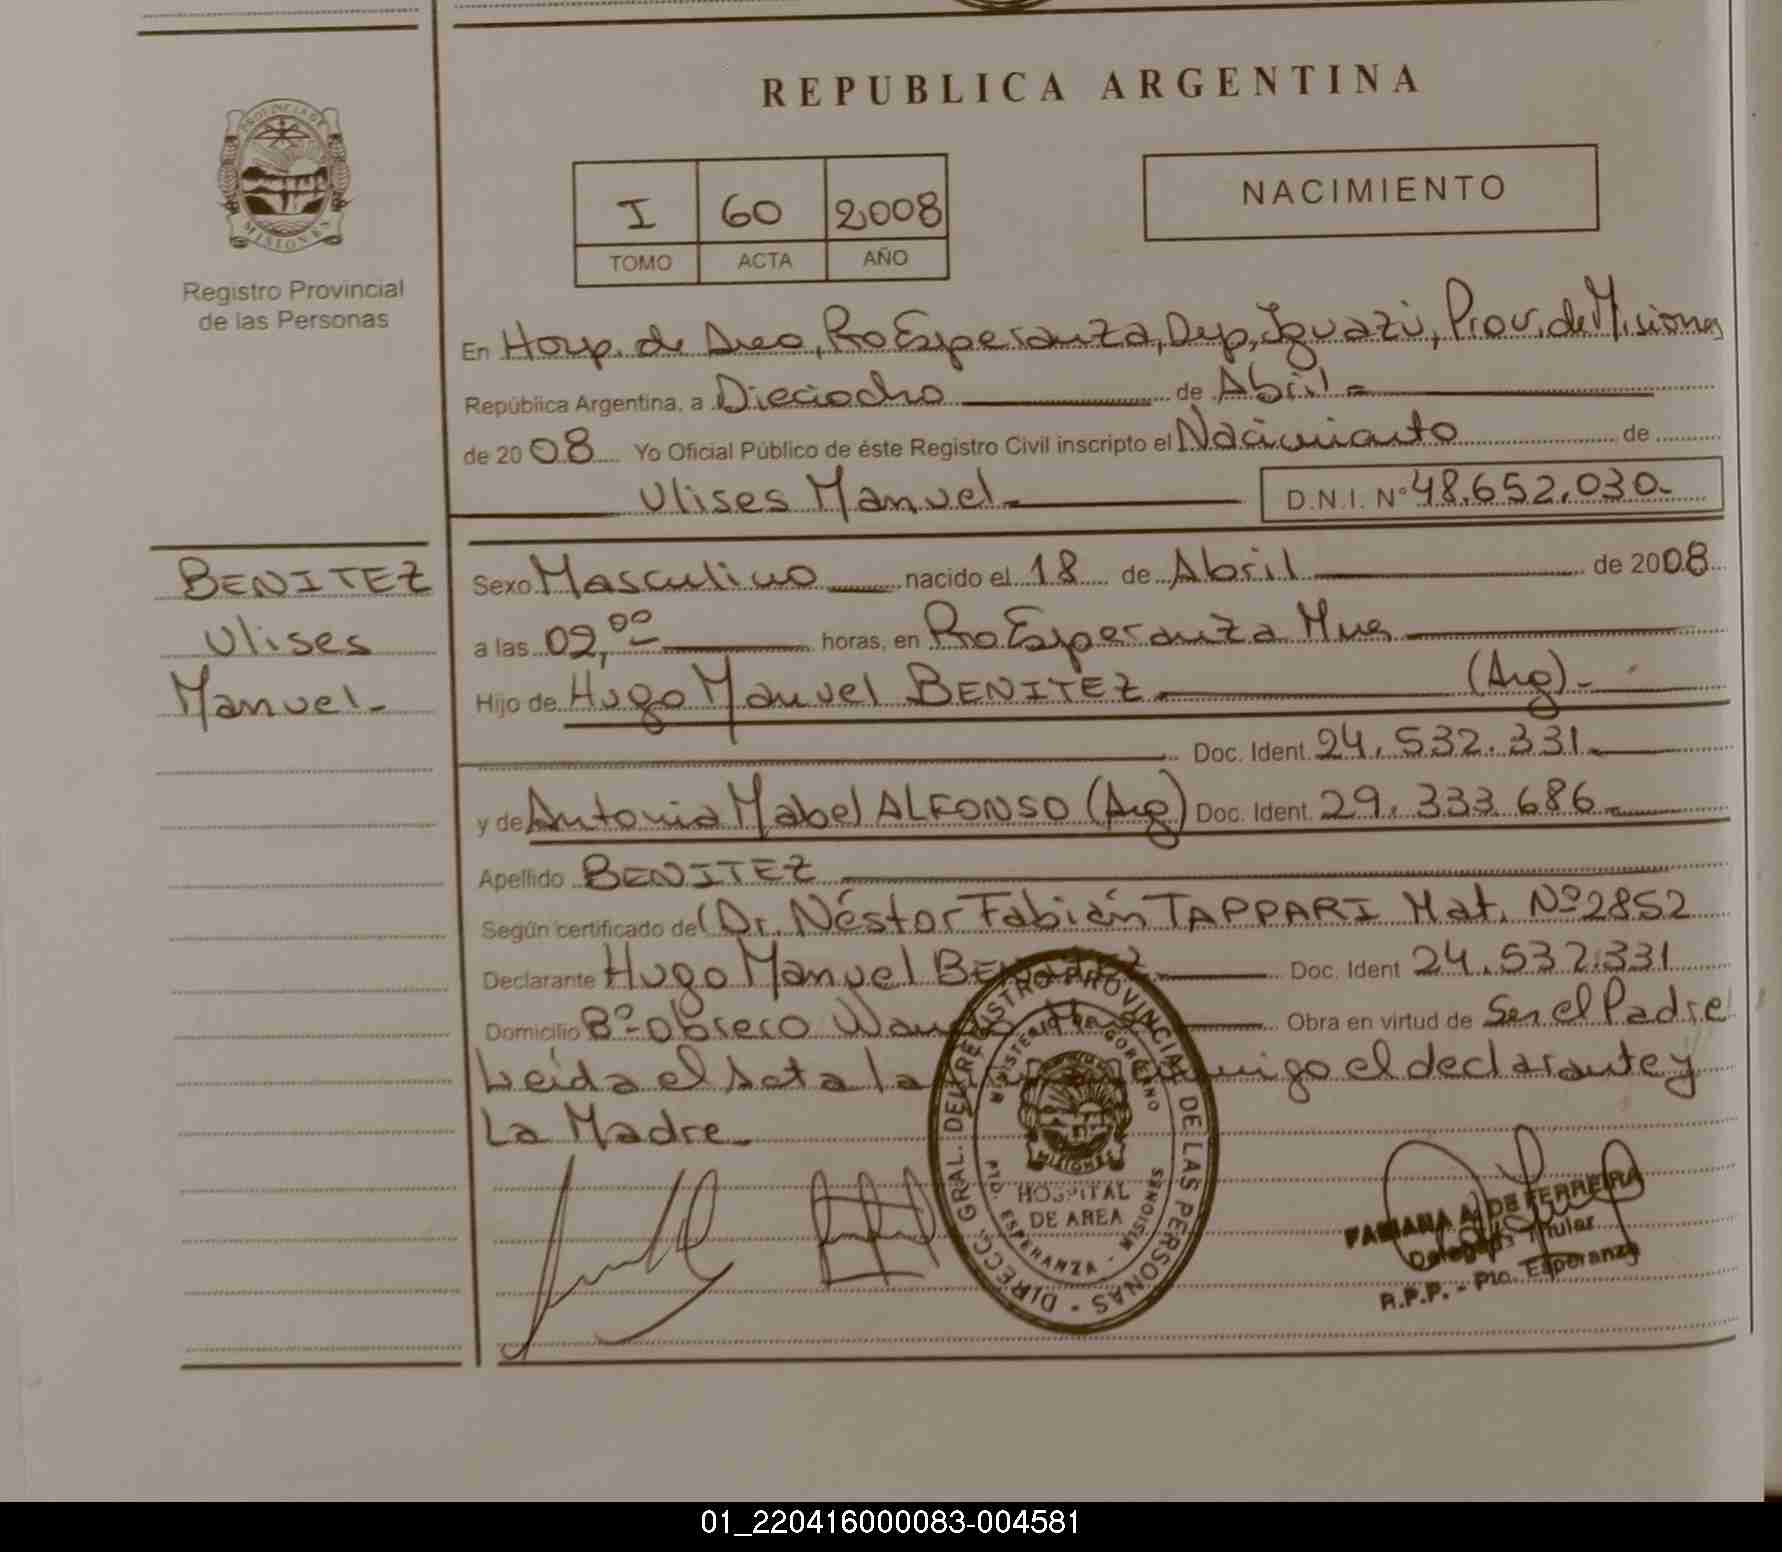 REPUBLICA ARGENTINA
PROVINCIA DE
MISIONES
Registro Provincial
de las Personas
I 60 2008
TOMO ACTA AÑO
NACIMIENTO
En Hosp. de Area, Pto Esperanza, Dep, Iguazú, Prov. de Misiones
República Argentina, a Dieciocho de Abril
de 2008 Yo Oficial Público de éste Registro Civil inscripto el Nacimiento de
Ulises Manuel D.N.I. Nº 48.652.030-
BENITEZ
Ulises
Manuel-
Sexo Masculino nacido el 18 de Abril de 2008
a las 02,00 horas, en Pto Esperanza Mnes
Hijo de Hugo Manuel BENITEZ (Arg)-
Doc. Ident. 24.532.331
y de Antonia Mabel ALFONSO (Arg) Doc. Ident. 29.333.686
Apellido BENITEZ
Según certificado del Dr. Néstor Fabián TAPPARI Mat. Nº 2852
Declarante Hugo Manuel BENITEZ Doc. Ident 24.532.331
Domicilio Bº Obrero Obra en virtud de Ser el Padre
Leída el Acta la el declarante y
La Madre
DIRECC. GRAL. DEL REGISTRO PROVINCIAL DE LAS PERSONAS
MINISTERIO DE GOBIERNO
MISIONES
HOSPITAL
DE AREA
PTO. ESPERANZA - MISIONES
FABIANA A. DE FERREIRA
Delegada Titular
R.P.P. - Pto. Esperanza
01_220416000083-004581